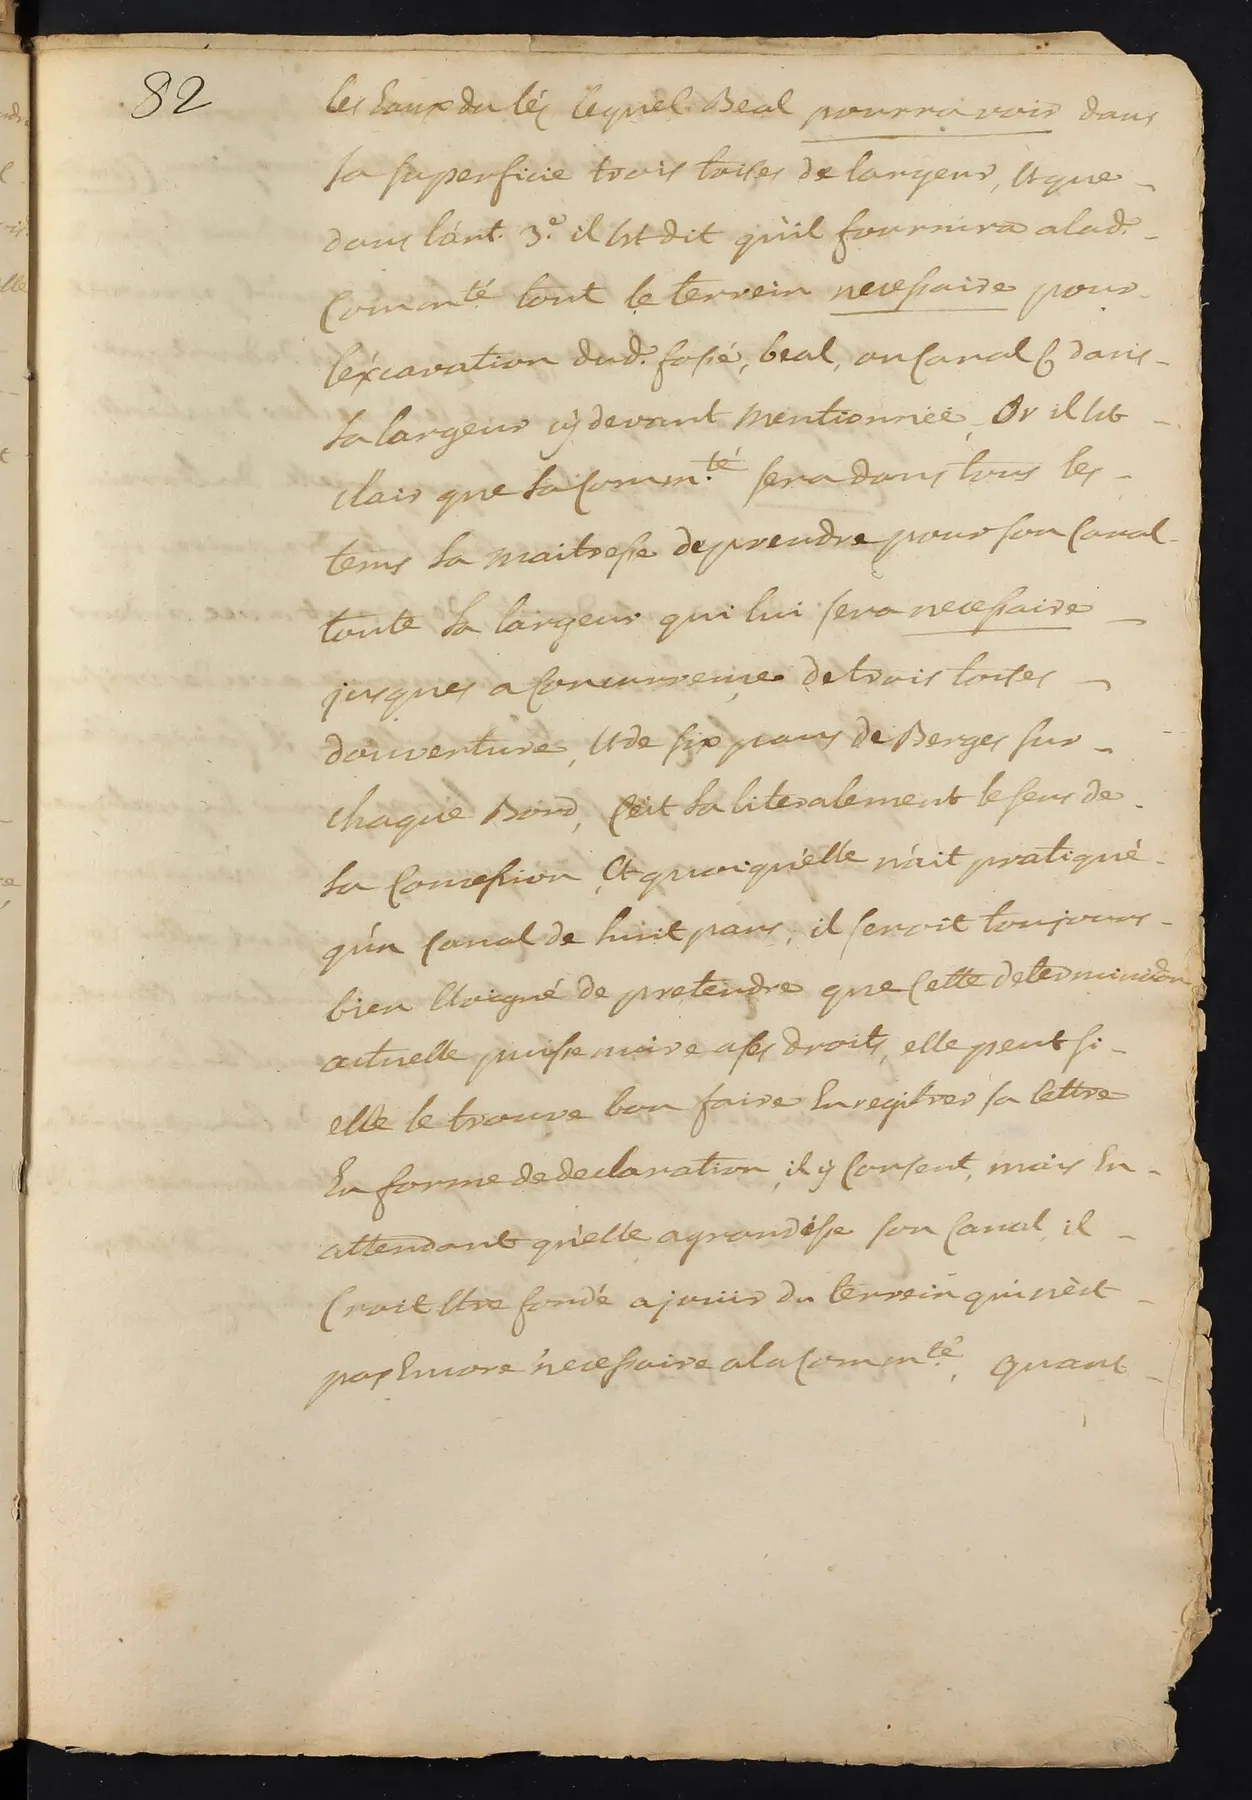 82
les Eaux du lés lequel Beal pourra voir dans
la superficie trois toises de largeur, Et que
dans l'art. 3.e il Est dit qu'il fournira a lad.e
Comm.té tout le terrein necessaire pour
l'éxcavation dud. fossé, beal, ou Canal & dans
la largeur cÿ devant Mentionnée, Or il Est
clair que la Comm.té sera dans tous les
tems la maitresse de prendre pour son Canal
toute la largeur qui lui sera necessaire
jusques a Concurrence de trois toises
douverture, Et de six pans de Berges sur
chaque Bord, C'est la literalement le sens de
la Concession, Et quoiqu'elle n'ait pratiqué
qu'un Canal de huit pans, il seroit toujours
bien Eloigné de pretendre que Cette determinaon
actuelle puisse nuire a ses droits, elle peut si
elle le trouve bon faire Enregitrer sa lettre
En forme de declaration, il ÿ Consent, mais En
attendant qu'elle agrandisse son Canal, il
Croit Etre fondé a jouir du terrein qui n'est
pas Encore necessaire a la Comm.té, Quant